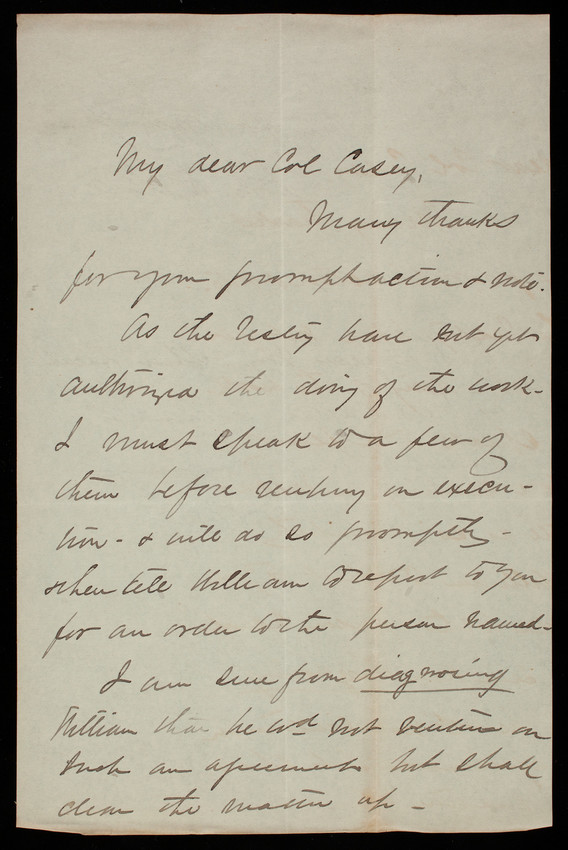 My dear Col Casey,
Many thanks
for your prompt action & note.
As the Vestry have not yet
authorized the doing of the work-
I must speak to a few of
them before venturing on execu-
tion - & will do so promptly -
& then tell William to report to you
for an order to the person named -
I am sure from diagnosing
William that he wd not venture on
such an agreement but shall
clear the matter up -